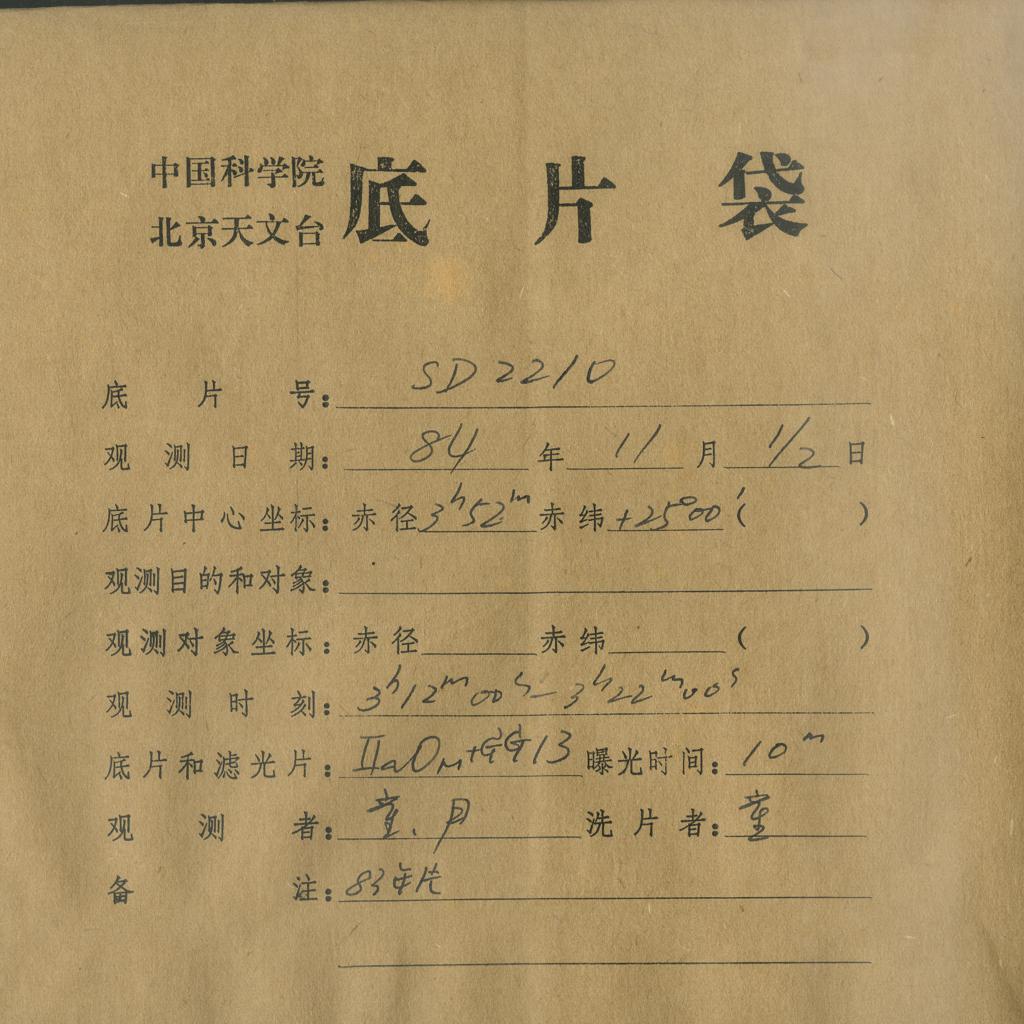 中国科学院
北京天文台
底片袋
底片号: SD2210
观测日期: 84 年 11 月 1/2 日
底片中心坐标: 赤径 3h52m 赤纬 +25°00′ ( )
观测目的和对象:
观测对象坐标: 赤径 赤纬 ( )
观测时刻: 3h12m00s—3h22m00s
底片和滤光片: IIaOM+GG13 曝光时间: 10m
观测者: 童、月 洗片者: 童
备注: 83年片